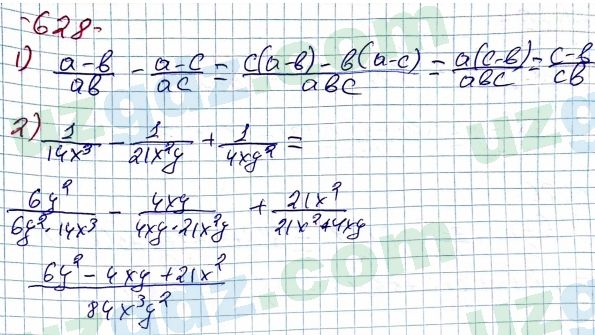 -628-
1) (a-b)/(ab) - (a-c)/(ac) = (c(a-b) - b(a-c))/(abc) = (a(c-b))/(abc) = (c-b)/(cb)
2) 1/(14x³) - 1/(21x²y) + 1/(4xy²) =
6y²/(6y²·14x³) - 4xy/(4xy·21x²y) + 21x²/(21x²·4xy
(6y² - 4xy + 21x²)/(84x³y²)